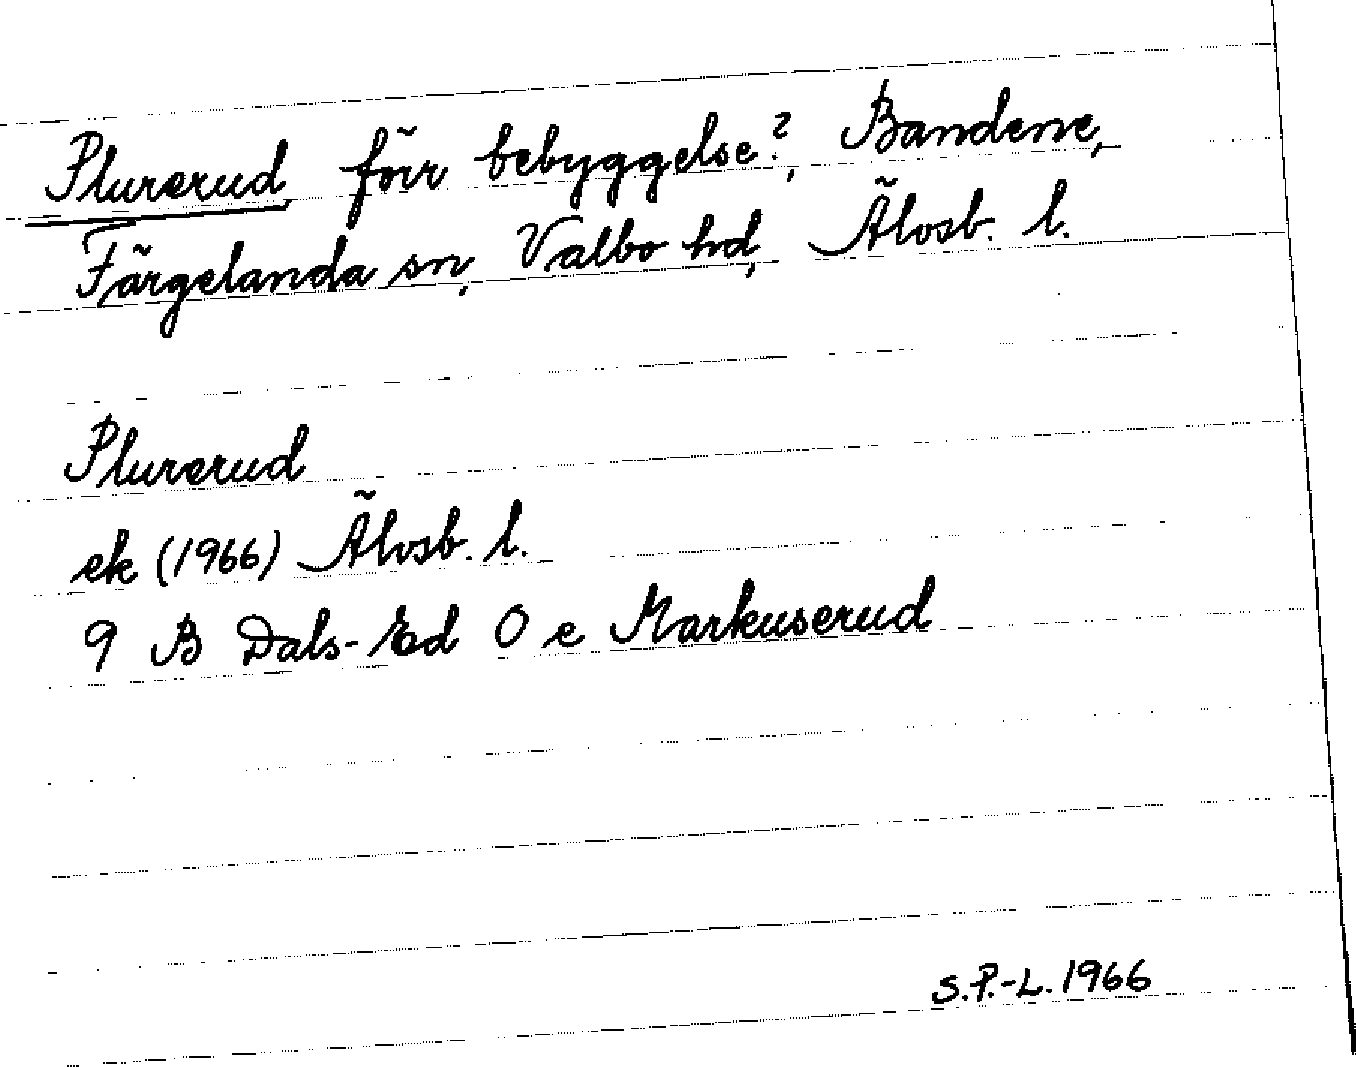 Plurerud, förr bebyggelse?, Bandene,
Färgelanda sn, Valbo hd, Älvsb. l.
Plurerud
ek (1966) Älvsb. l.
9 B Dals-Ed O e Markuserud
S.P.-L. 1966